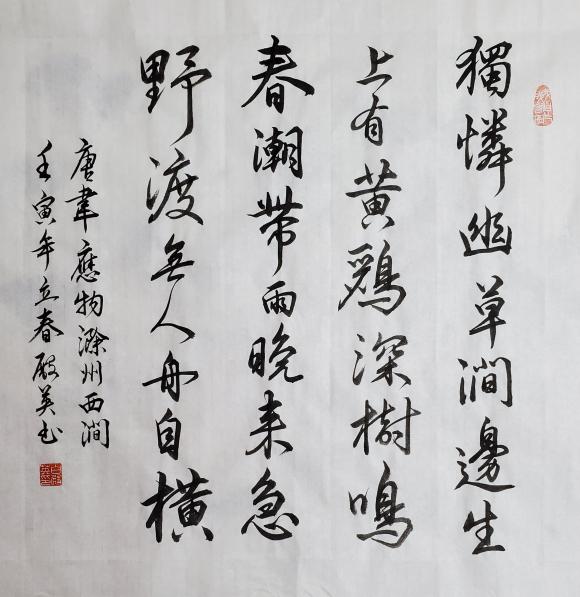 獨憐幽草澗邊生
上有黃鸝深樹鳴
春潮帶雨晚來急
野渡無人舟自橫
唐韋應物滁州西澗
壬寅年立春殿美书